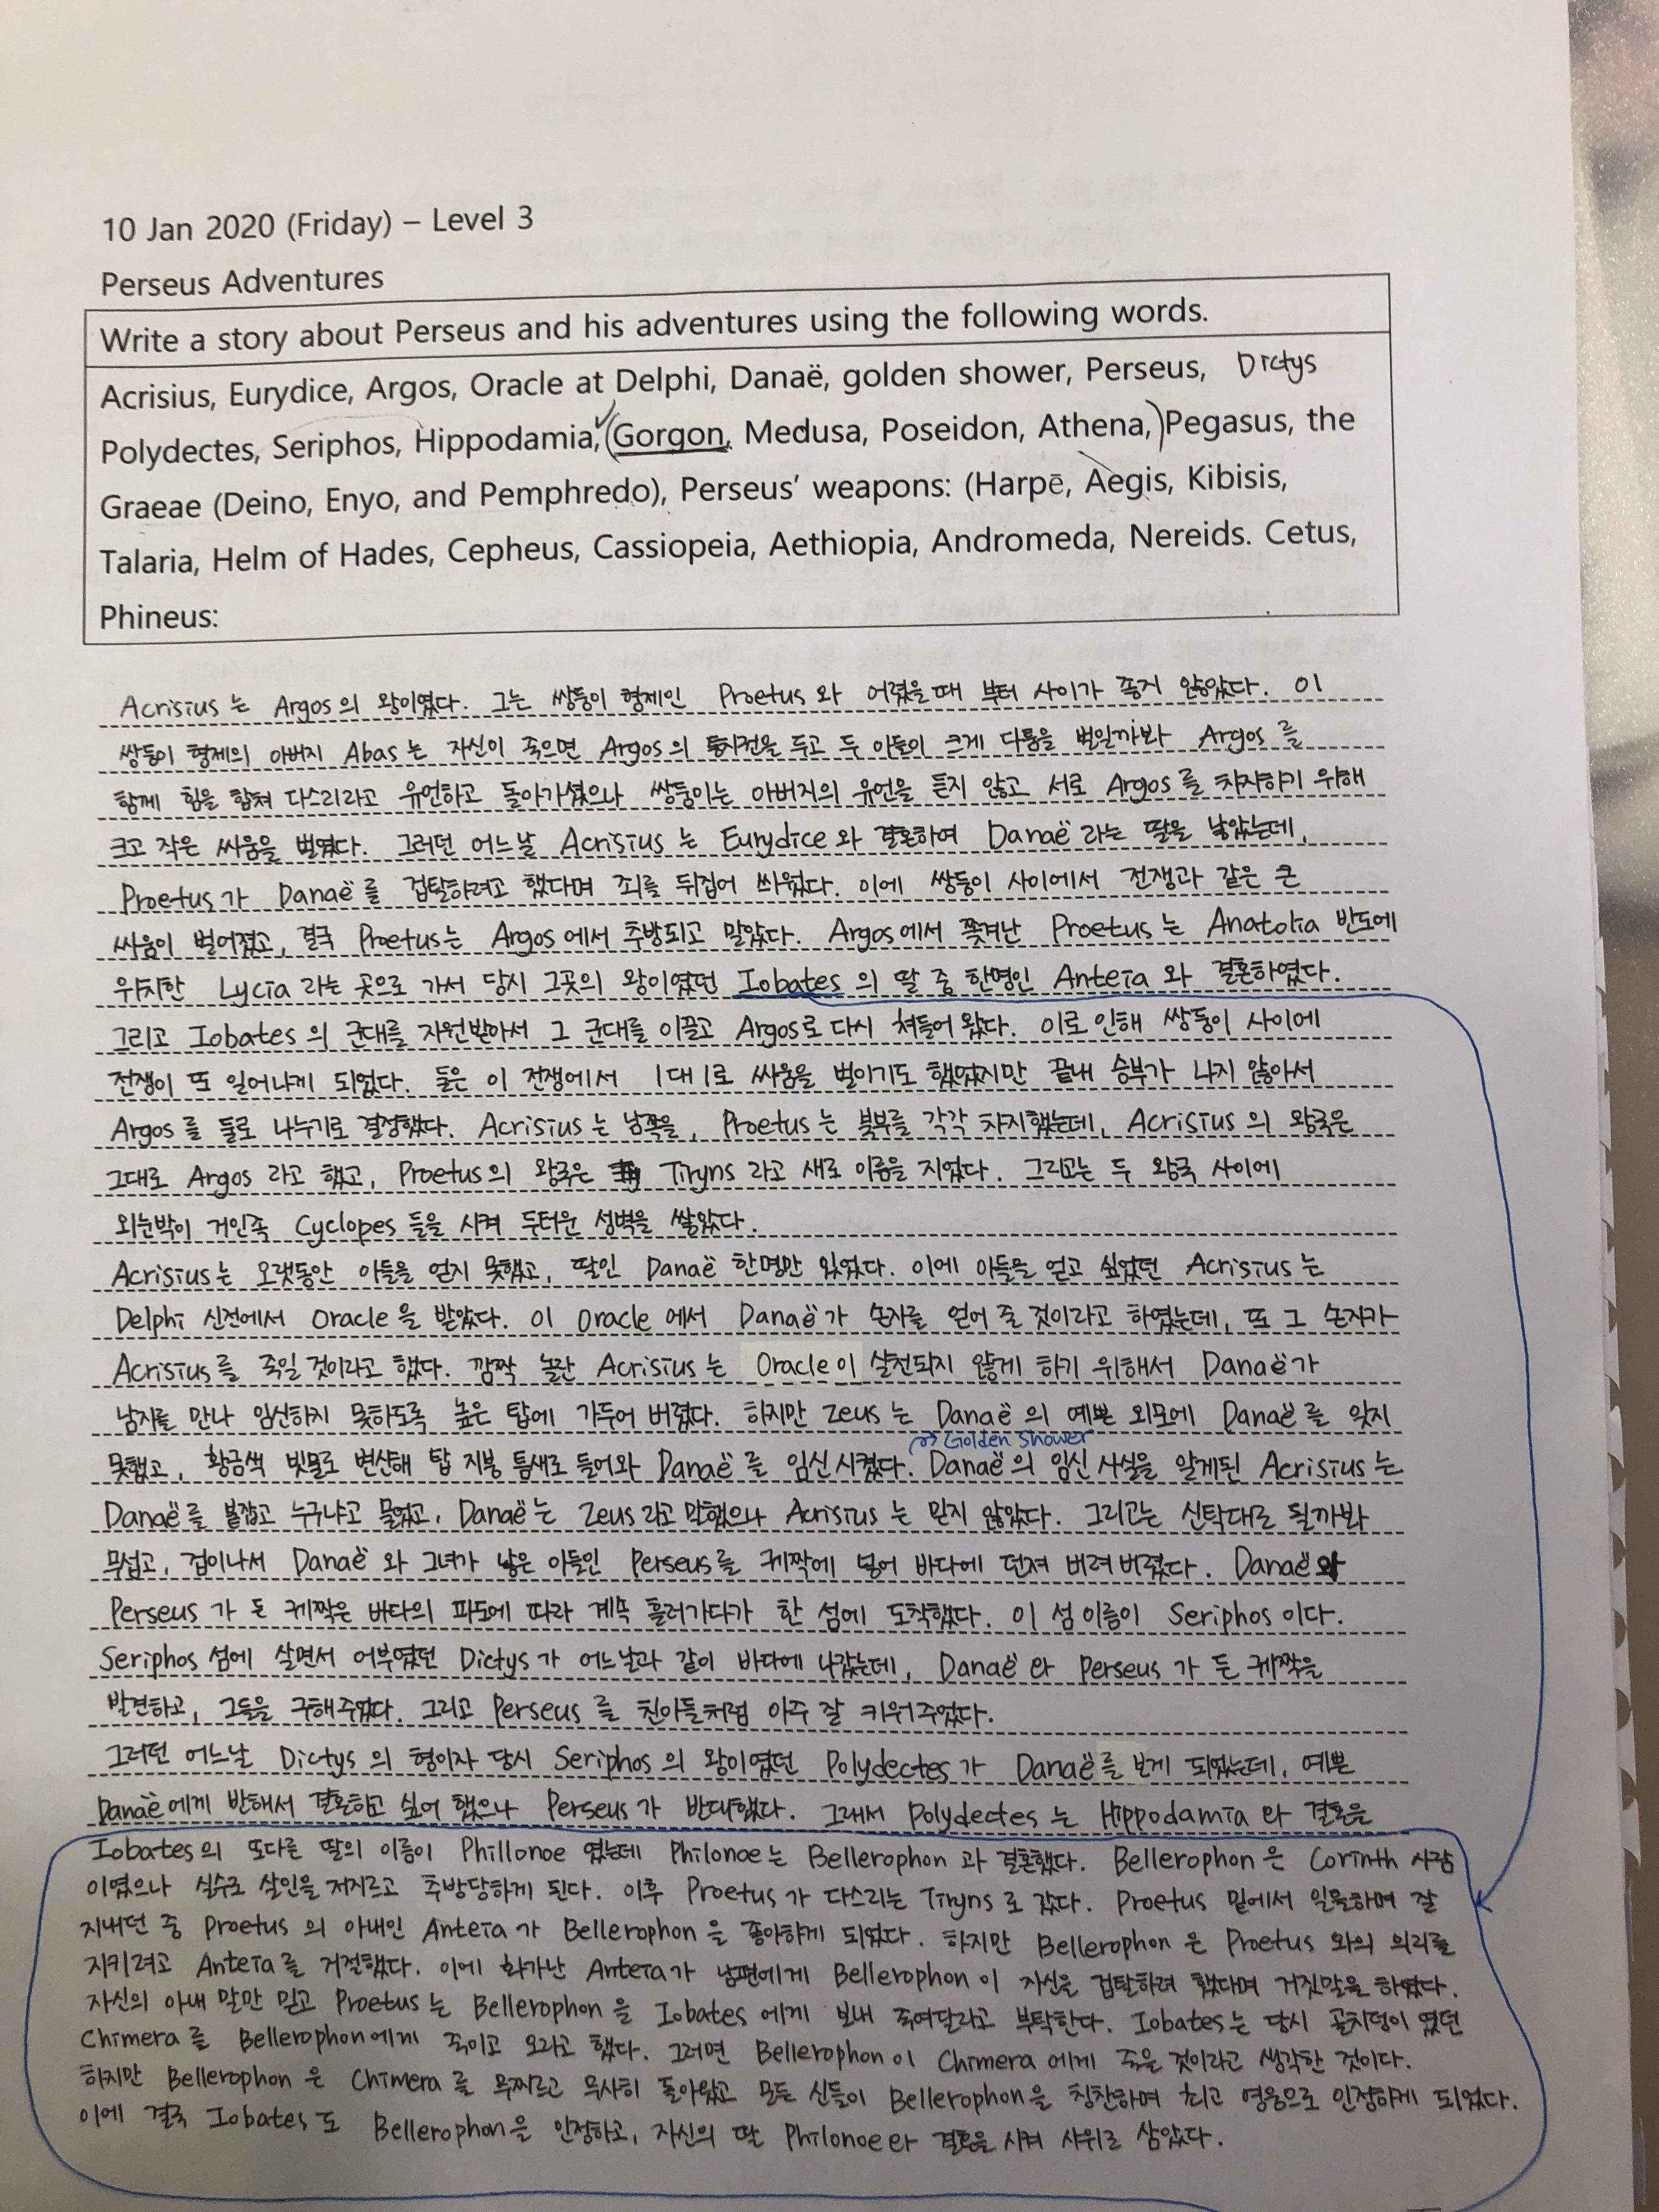 10 Jan 2020 (Friday) – Level 3
Perseus Adventures
Write a story about Perseus and his adventures using the following words.
Acrisius, Eurydice, Argos, Oracle at Delphi, Danaë, golden shower, Perseus, Dictys
Polydectes, Seriphos, Hippodamia, (Gorgon, Medusa, Poseidon, Athena,) Pegasus, the
Graeae (Deino, Enyo, and Pemphredo), Perseus' weapons: (Harpē, Aegis, Kibisis,
Talaria, Helm of Hades, Cepheus, Cassiopeia, Aethiopia, Andromeda, Nereids. Cetus,
Phineus:
Acrisius는 Argos의 왕이였다. 그는 쌍둥이 형제인 Proetus와 어렸을때 부터 사이가 좋지 않았다. 이
쌍둥이 형제의 아버지 Abas는 자신이 죽으면 Argos의 통치권을 두고 두 아들이 크게 다툼을 벌일까봐 Argos를
함께 힘을 합쳐 다스리라고 유언하고 돌아가셨으나 쌍둥이는 아버지의 유언을 듣지 않고 서로 Argos를 차지하기 위해
크고 작은 싸움을 벌였다. 그러던 어느날 Acrisius는 Eurydice와 결혼하여 Danaë라는 딸을 낳았는데,
Proetus가 Danaë를 겁탈하려고 했다며 죄를 뒤집어 쓰웠다. 이에 쌍둥이 사이에서 전쟁과 같은 큰
싸움이 벌어졌고, 결국 Proetus는 Argos에서 추방되고 말았다. Argos에서 쫓겨난 Proetus는 Anatolia 반도에
위치한 Lycia라는 곳으로 가서 당시 그곳의 왕이였던 Iobates의 딸 중 한명인 Anteia와 결혼하였다.
그리고 Iobates의 군대를 지원받아서 그 군대를 이끌고 Argos로 다시 쳐들어 왔다. 이로 인해 쌍둥이 사이에
전쟁이 또 일어나게 되었다. 둘은 이 전쟁에서 1대1로 싸움을 벌이기도 했었지만 끝내 승부가 나지 않아서
Argos를 둘로 나누기로 결정했다. Acrisius는 남쪽을, Proetus는 북부를 각각 차지했는데, Acrisius의 왕국은
그대로 Argos라고 했고, Proetus의 왕국은 Tiryns라고 새로 이름을 지었다. 그리고는 두 왕국 사이에
외눈박이 거인족 Cyclopes들을 시켜 두터운 성벽을 쌓았다.
Acrisius는 오랫동안 아들을 얻지 못했고, 딸인 Danaë 한명만 있었다. 이에 아들을 얻고 싶었던 Acrisius는
Delphi 신전에서 Oracle을 받았다. 이 Oracle에서 Danaë가 손자를 얻어 줄 것이라고 하였는데, 또 그 손자가
Acrisius를 죽일 것이라고 했다. 깜짝 놀란 Acrisius는 Oracle이 실현되지 않게 하기 위해서 Danaë가
남자를 만나 임신하지 못하도록 높은 탑에 가두어 버렸다. 하지만 Zeus는 Danaë의 예쁜 외모에 Danaë를 잊지
→ Golden Shower
못했고, 황금색 빗물로 변신해 탑 지붕 틈새로 들어와 Danaë를 임신시켰다. Danaë의 임신사실을 알게된 Acrisius는
Danaë를 붙잡고 누구냐고 물었고, Danaë는 Zeus라고 말했으나 Acrisius는 믿지 않았다. 그리고는 신탁대로 될까봐
무섭고, 겁이나서 Danaë와 그녀가 낳은 아들인 Perseus를 궤짝에 넣어 바다에 던져 버려버렸다. Danaë와
Perseus가 든 궤짝은 바다의 파도에 따라 계속 흘러가다가 한 섬에 도착했다. 이 섬 이름이 Seriphos이다.
Seriphos 섬에 살면서 어부였던 Dictys가 어느날과 같이 바다에 나갔는데, Danaë와 Perseus가 든 궤짝을
발견하고, 그들을 구해주었다. 그리고 Perseus를 친아들처럼 아주 잘 키워주었다.
그러던 어느날 Dictys의 형이자 당시 Seriphos의 왕이였던 Polydectes가 Danaë를 보게 되었는데, 예쁜
Danaë에게 반해서 결혼하고 싶어 했으나 Perseus가 반대했다. 그래서 Polydectes는 Hippodamia와 결혼을
Iobates의 또다른 딸의 이름이 Phillonoe였는데 Philonoe는 Bellerophon과 결혼했다. Bellerophon은 Corinth 사람
이였으나 실수로 살인을 저지르고 추방당하게 된다. 이후 Proetus가 다스리는 Tiryns로 갔다. Proetus 밑에서 일을하며 잘
지내던 중 Proetus의 아내인 Anteia가 Bellerophon을 좋아하게 되었다. 하지만 Bellerophon은 Proetus와의 의리를
지키려고 Anteia를 거절했다. 이에 화가난 Anteia가 남편에게 Bellerophon이 자신을 겁탈하려 했다며 거짓말을 하였다.
자신의 아내 말만 믿고 Proetus는 Bellerophon을 Iobates에게 보내 죽여달라고 부탁한다. Iobates는 당시 골치덩이였던
Chimera를 Bellerophon에게 죽이고 오라고 했다. 그러면 Bellerophon이 Chimera에게 죽을 것이라고 생각한 것이다.
하지만 Bellerophon은 Chimera를 무찌르고 무사히 돌아왔고 모든 신들이 Bellerophon을 칭찬하며 최고 영웅으로 인정하게 되었다.
이에 결국 Iobates도 Bellerophon을 인정하고, 자신의 딸 Philonoe와 결혼을 시켜 사위로 삼았다.